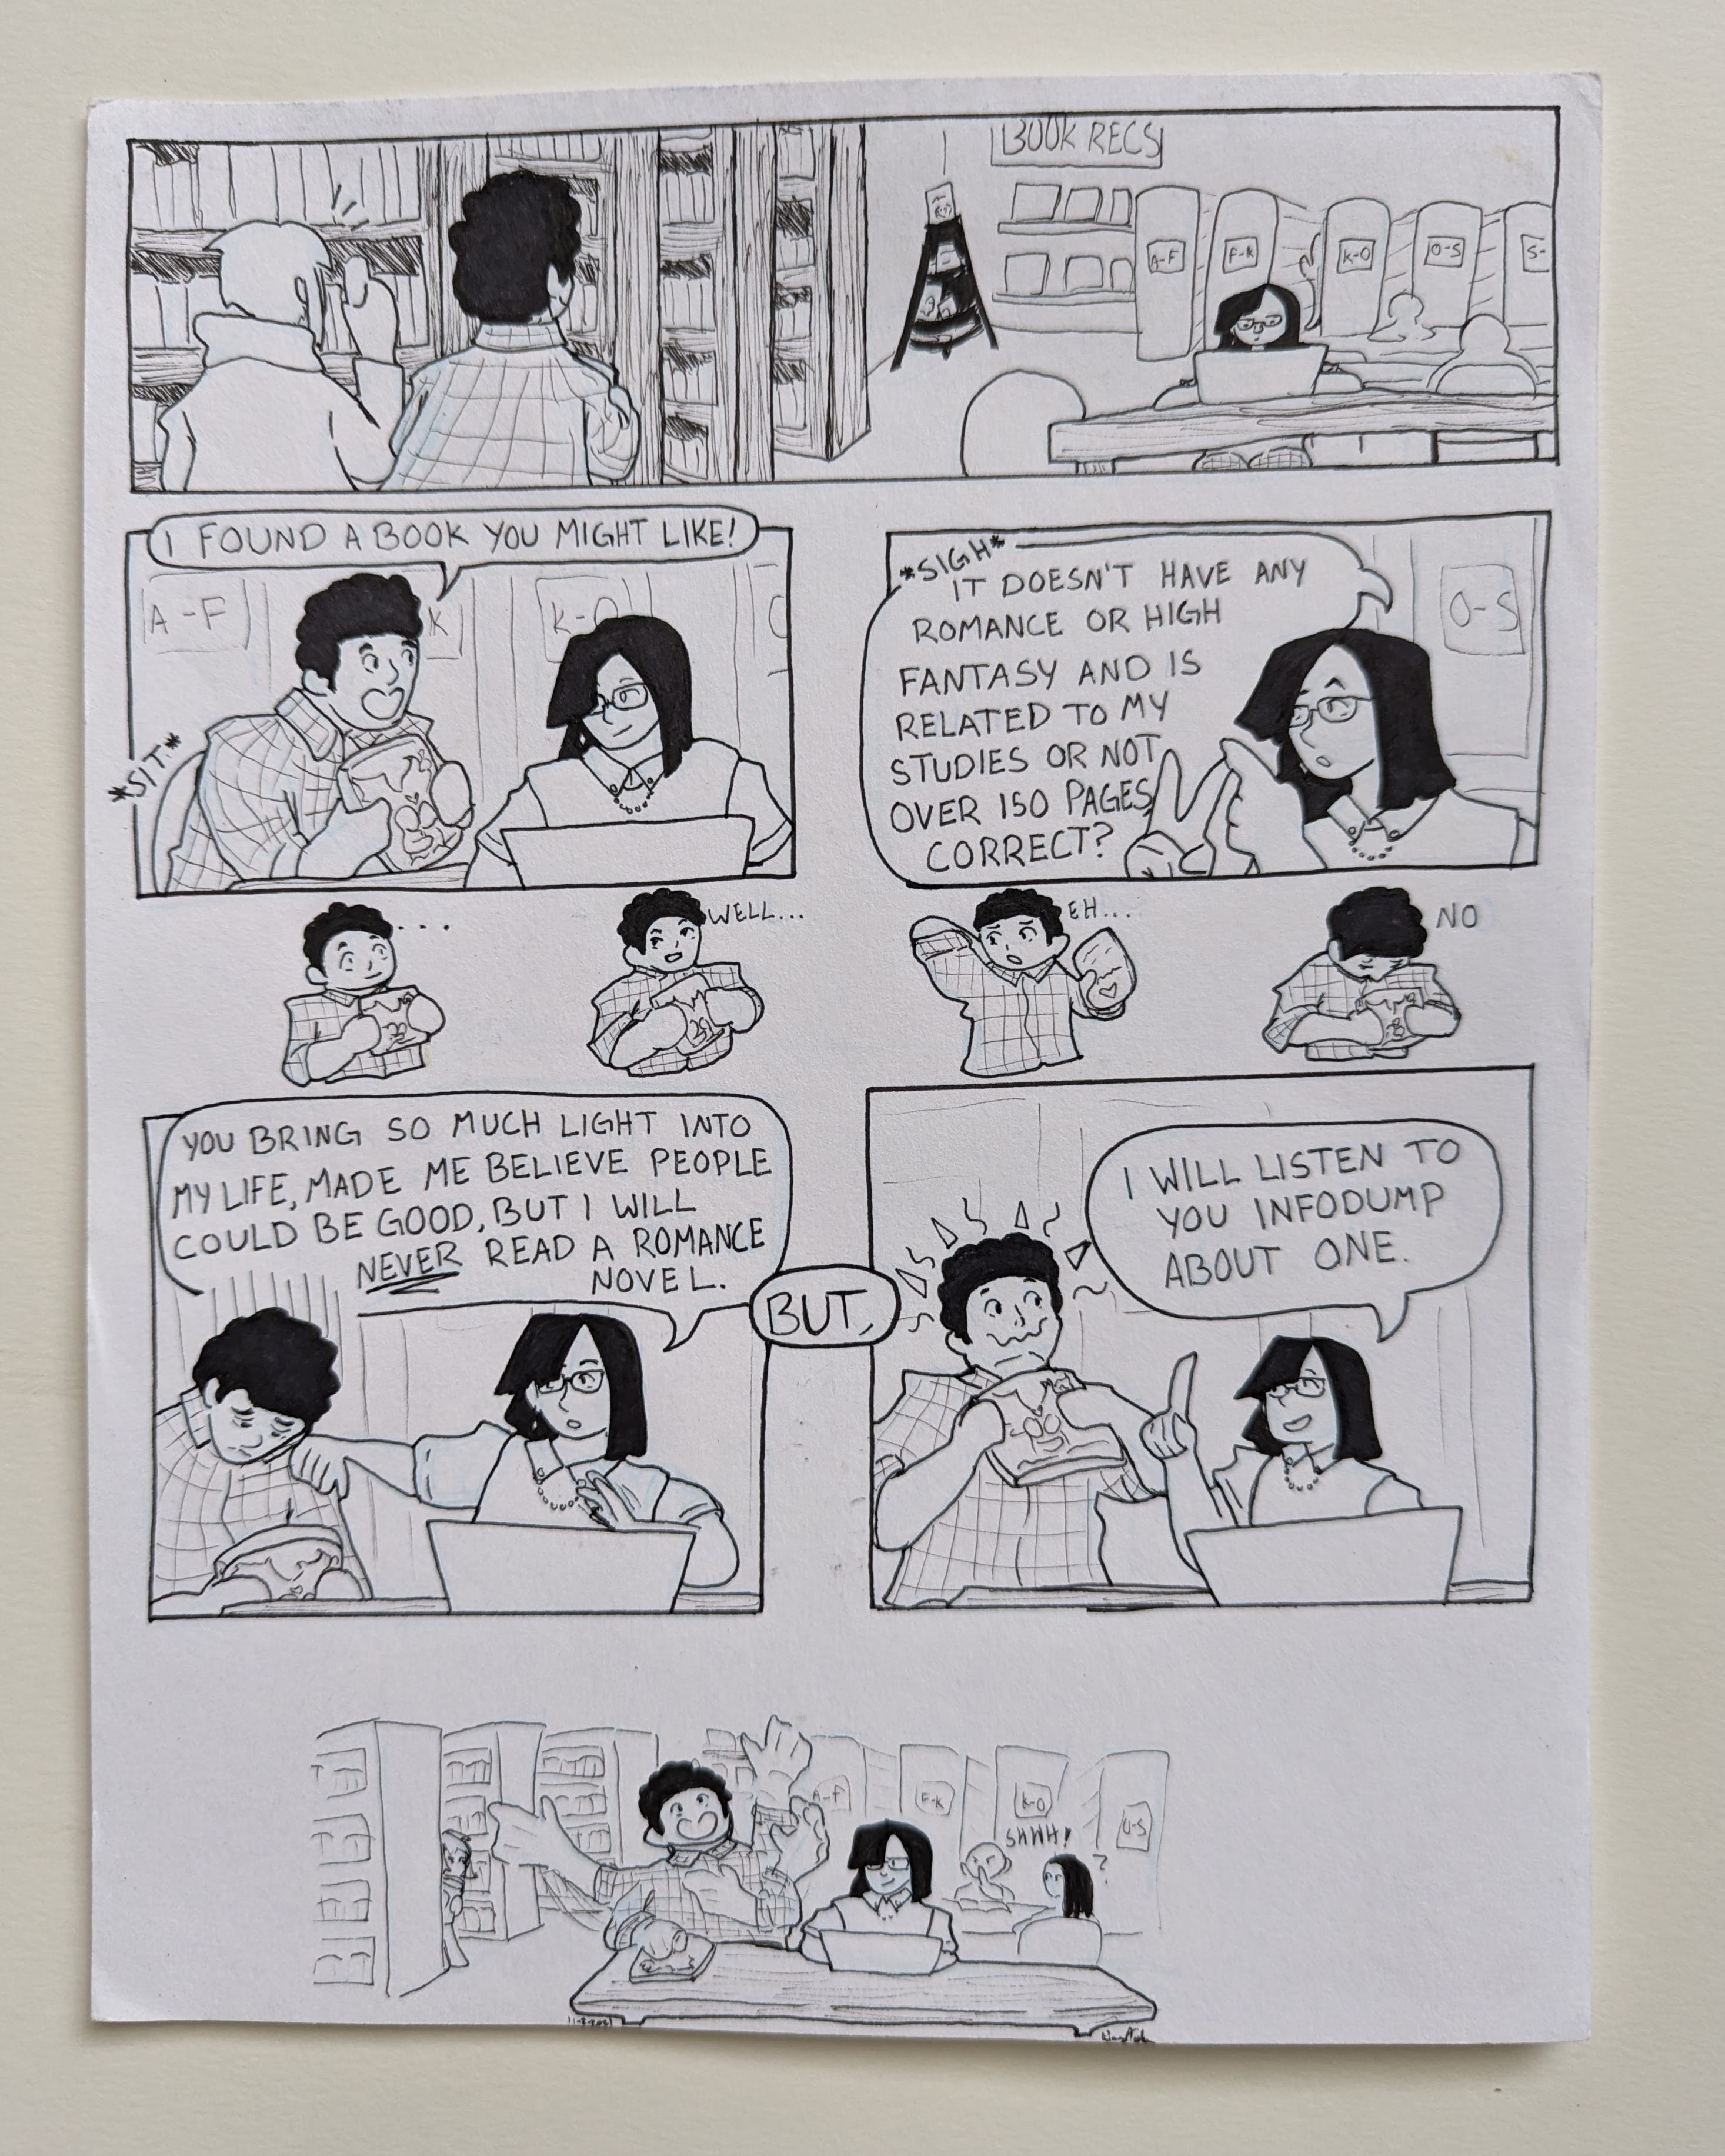 BOOK RECS
A-F
F-K
K-O
O-S
S-
I FOUND A BOOK YOU MIGHT LIKE!
A-F
K
K-O
*SIT*
*SIGH*
IT DOESN'T HAVE ANY
ROMANCE OR HIGH
FANTASY AND IS
RELATED TO MY
STUDIES OR NOT
OVER 150 PAGES,
CORRECT?
O-S
....
WELL...
EH...
NO
YOU BRING SO MUCH LIGHT INTO
MY LIFE, MADE ME BELIEVE PEOPLE
COULD BE GOOD, BUT I WILL
NEVER READ A ROMANCE
NOVEL.
BUT,
I WILL LISTEN TO
YOU INFODUMP
ABOUT ONE.
A-F
F-K
K-O
O-S
SHHH!
?